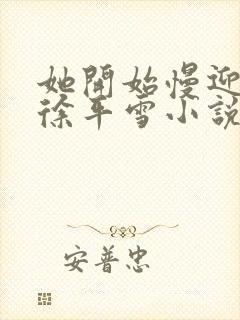 她開始慢迎
徐年雪小說
安普忠